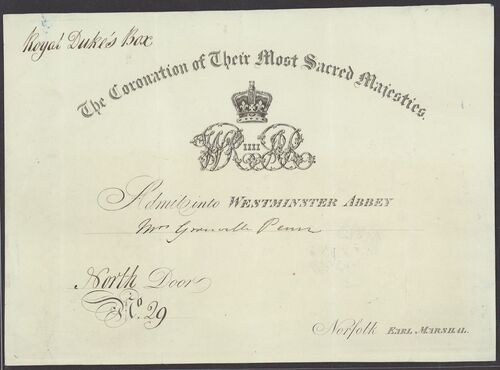 Royal Duke's Box
The Coronation of Their Most Sacred Majesties.
WR IIII AR
Admit into WESTMINSTER ABBEY
Mrs Grenville Penn
North Door
No. 29
Norfolk EARL MARSHAL.